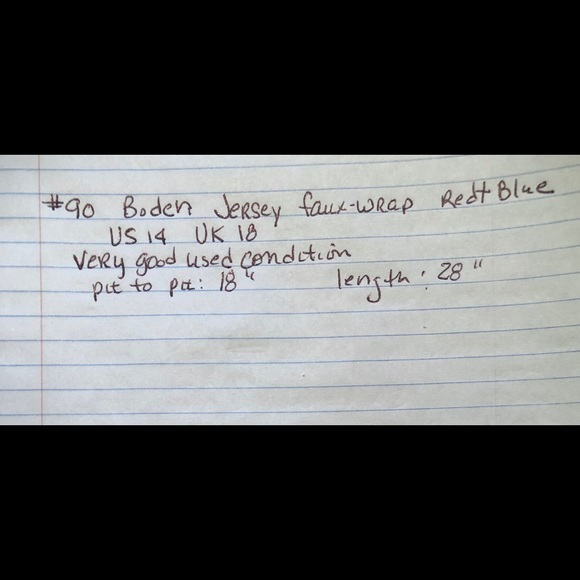 #90 Boden Jersey faux-wrap Red+Blue
US 14 UK 18
Very good used condition
pit to pit: 18" length: 28"